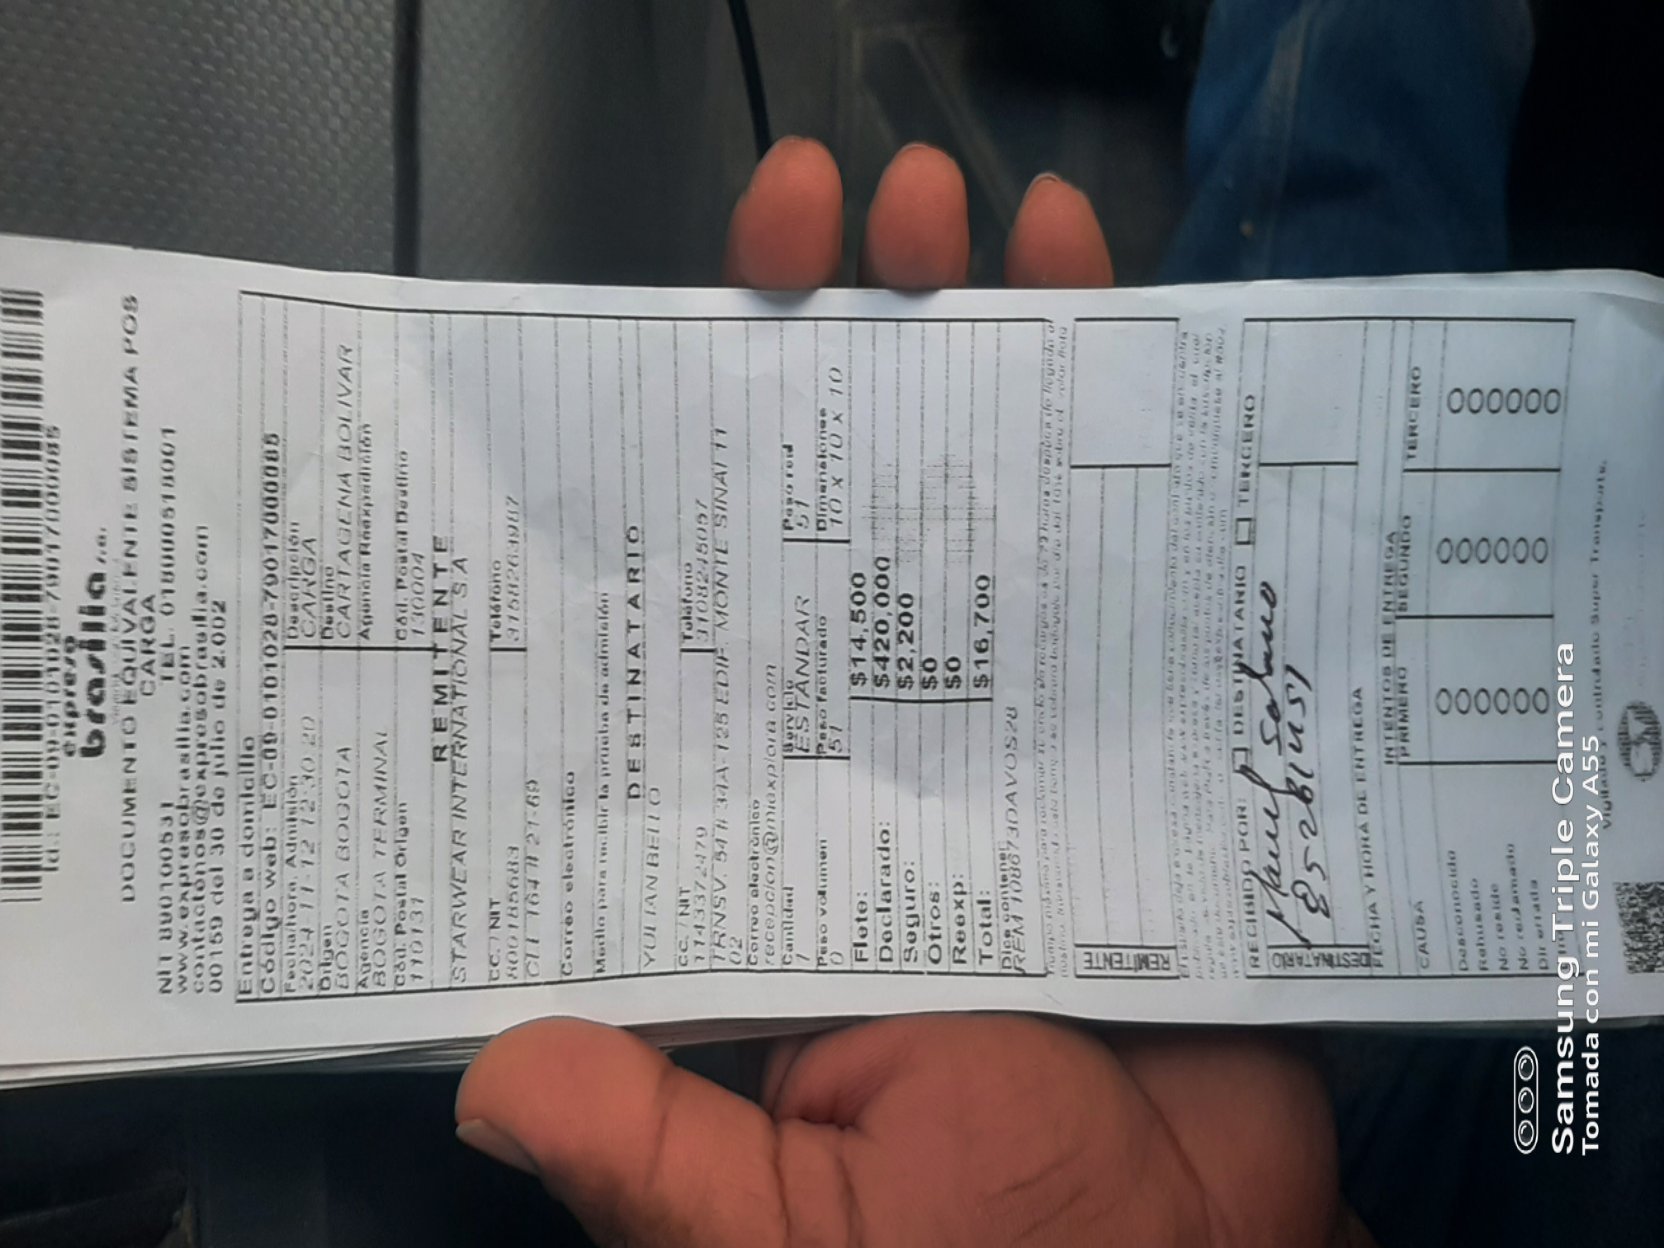 Id.: EC-09-0101028-7901700085
expreso
brasilia s.a.
DOCUMENTO EQUIVALENTE SISTEMA POS
CARGA
NIT 890100531 TEL. 018000518001
www.expresobrasilia.com
contactenos@expresobrasilia.com
00159 del 30 de julio de 2.002
Entrega a domicilio
Código web: EC-09-0101028-7901700085
Fecha/hora. Admisión
2024-11-12 12:30:20
Descripción
CARGA
Origen
BOGOTA BOGOTA
Destino
CARTAGENA BOLIVAR
Agencia
BOGOTA TERMINAL
Agencia Reexpedición
Cód. Postal Origen
110131
Cód. Postal Destino
130004
REMITENTE
STARWEAR INTERNATIONAL S A
CC. / NIT
800185683
Teléfono
3158263987
CLL 164 # 21-69
Correo electrónico
Medio para recibir la prueba de admisión
DESTINATARIO
YULIAN BELLO
CC. / NIT
1143372479
Teléfono
3108245057
TRNSV. 54 # 34A-125 EDIF. MONTE SINAI 11
02
Correo electrónico
recepcion@miexplora.com
Cantidad
1
Servicio
ESTANDAR
Peso real
51
Peso volumen
0
Peso facturado
51
Dimensiones
10 x 10 x 10
Flete: $14,500
Declarado: $420,000
Seguro: $2,200
Otros: $0
Reexp: $0
Total: $16,700
Dice contener
REM 108673DAVOS28
REMITENTE
RECIBIDO POR: DESTINATARIO TERCERO
DESTINATARIO
FECHA Y HORA DE ENTREGA
INTENTOS DE ENTREGA
CAUSA PRIMERO SEGUNDO TERCERO
Desconocido
Rehusado
No reside
No reclamado
Dir errada
Samsung Triple Camera
Tomada con mi Galaxy A55